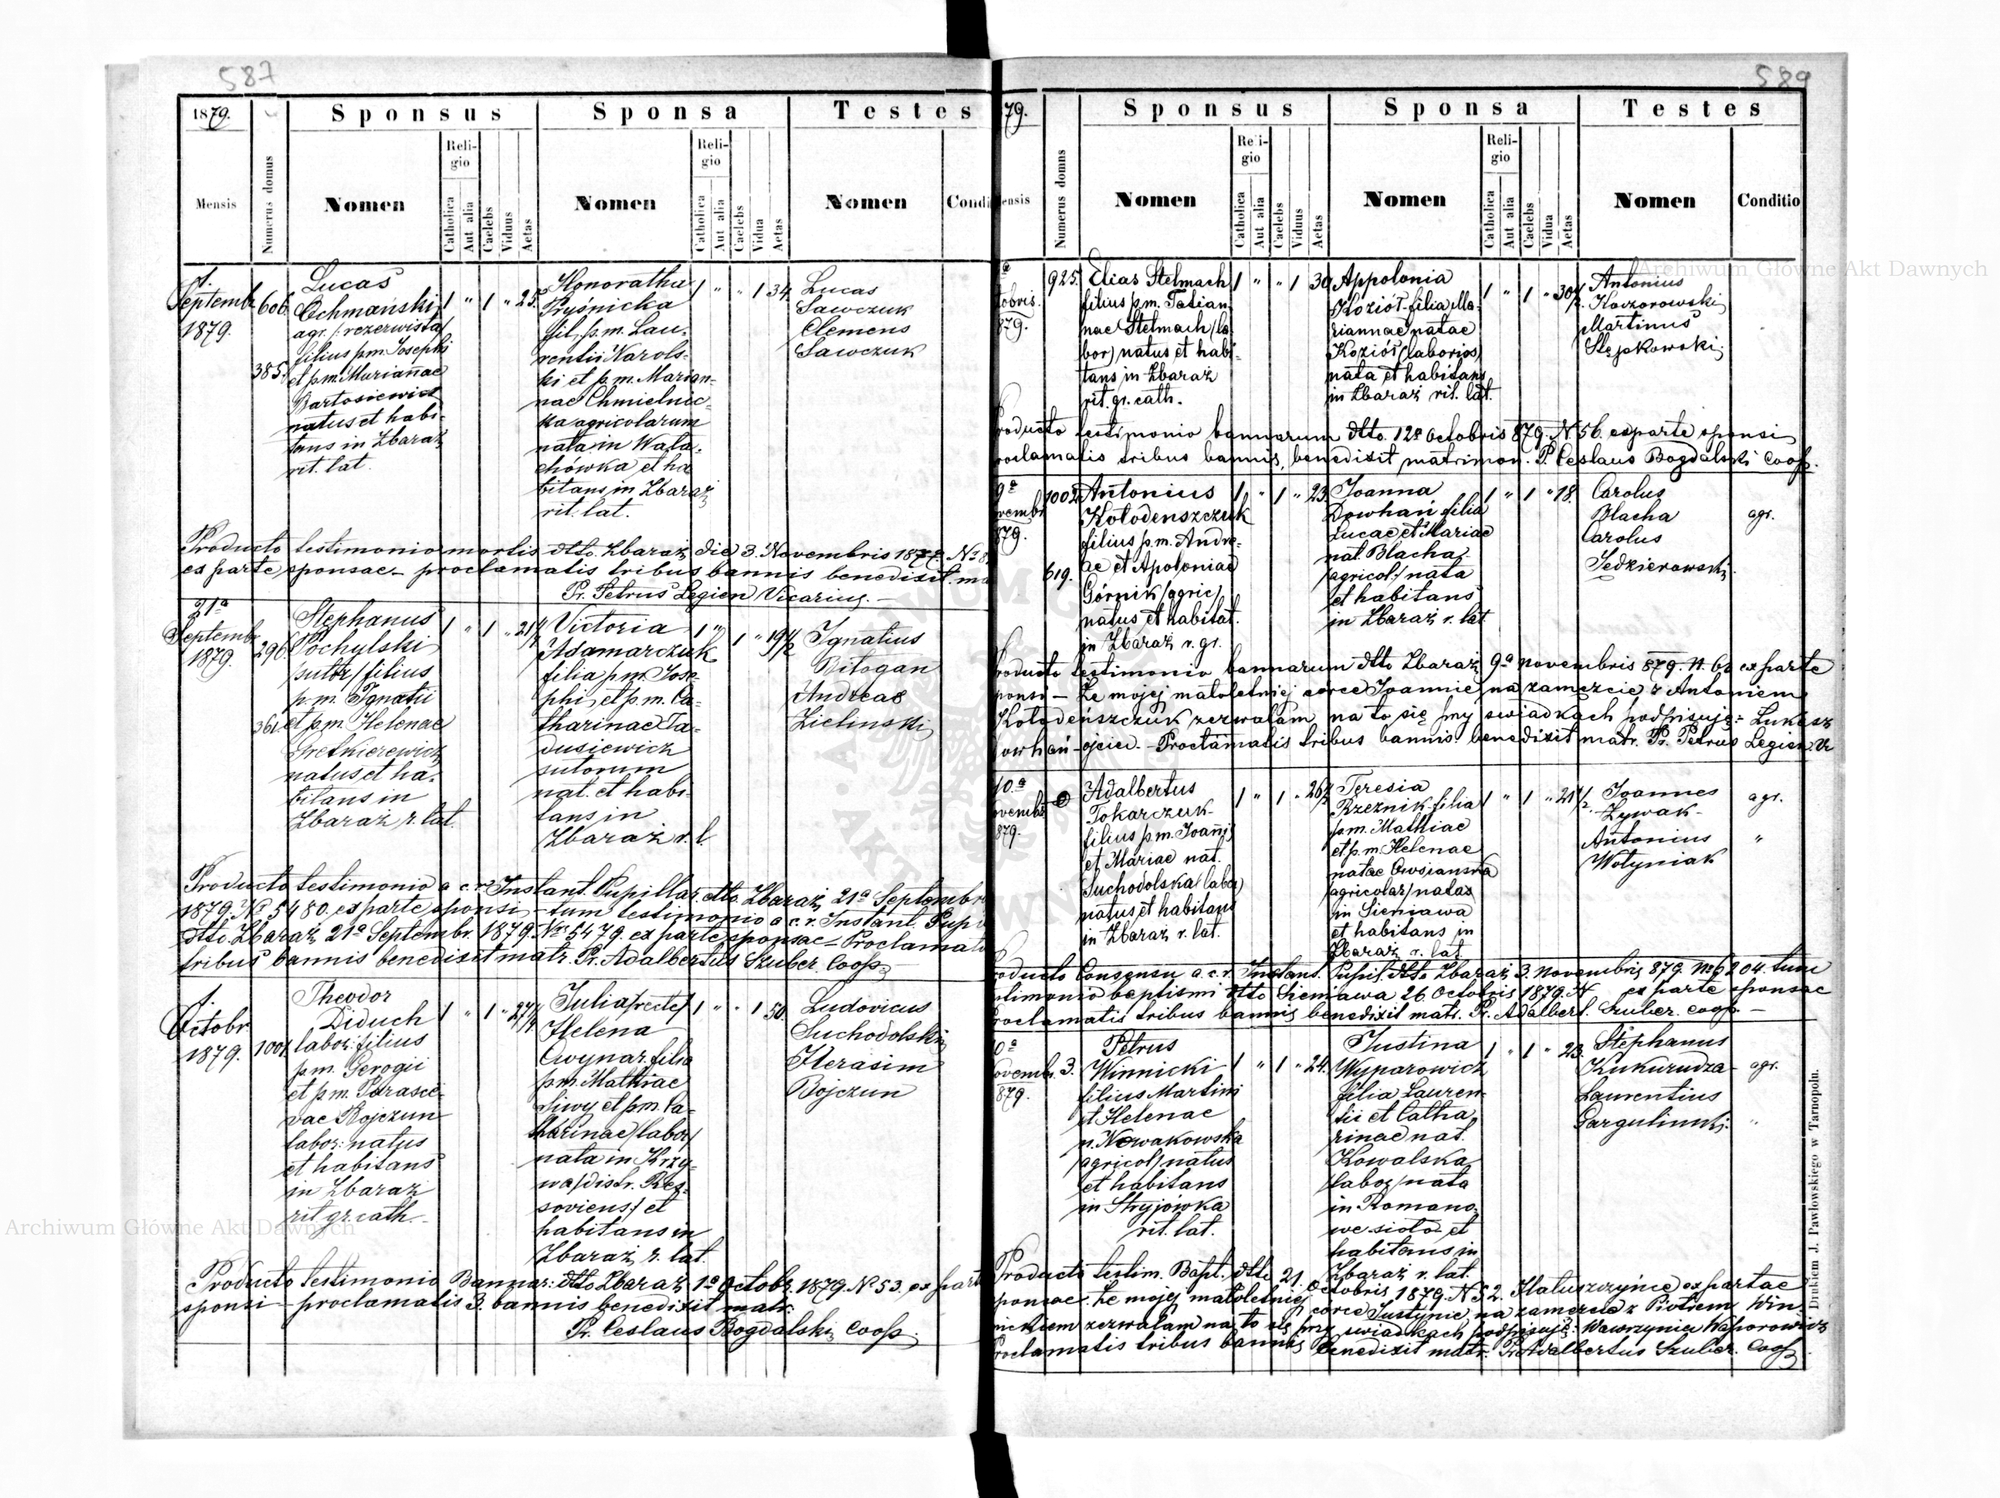 587
1879.
Sponsus
Sponsa
Testes
Mensis
Numerus domus
Nomen
Religio
Catholica
Aut alia
Caelebs
Viduus
Aetas
Nomen
Religio
Catholica
Aut alia
Caelebs
Vidua
Aetas
Nomen
Condi
1.
Septembr
1879.
606.
385.
Lucas
Ochmański
agr./:rezerwista/
filius p.m. Josephi
et p.m. Mariannae
Bartosiewicz
natus et habi-
tans in Zbaraż
rit. lat.
1 " 1 " 25.
Honoratha
Pryśnicka
fil. p.m. Lau-
rentii Karols-
ki et p.m. Marian-
nae Chmielnic-
ka agricolarum
nata in Wala-
chówka et ha
bitans in Zbaraż
rit. lat.
1 " " 1 34.
Lucas
Sawczuk
Clemens
Sawczuk
Producto testimonio mortis dtto. Zbaraż die 3. Novembris 1877. No 8
ex parte sponsae - proclamatis tribus bannis benedixit ma
Pr. Petrus Legien Vicarius.
21a
Septembr
1879.
296.
361.
Stephanus
Pochylski
sutor/filius
p.m. Ignatii
et p.m. Helenae
natus et ha-
bitans in
Zbaraż r. lat.
1 " 1 " 21 1/2
Victoria
Adamarczuk
filia p.m. Jose-
phi et p.m. Ca-
tharinae Ta-
dusiewicz
sutorum
nat. et habi-
tans in
Zbaraż r. l.
1 " 1 " 19 1/2
Ignatius
Bilogan
Andreas
Zielinski
Producto testimonio a c.r. Instant. Pupillar. dtto. Zbaraż 21a Septembr
1879. No 5480. ex parte sponsi - tum testimonio a c.r. Instant. Pupi
dtto Zbaraż 21a Septembr. 1879. Nr. 5479. ex parte sponsae - Proclamati
tribus bannis benedixit matr. Pr. Adalbertus Szuber Coop.
1.
Octobr
1879.
1001.
Theodor
Diduch
labor: filius
p.m. Gerogii
et p.m. Parasce-
vae Bojczun
labor: natus
et habitans
in Zbaraż
rit gr. cath.
1 " 1 " 27 1/4
Julia/recte/
Helena
Cwynar. filia
p.m. Mathiae
Siwy et p.m. Ca-
tharinae/labor/
nata in Krzy-
wa/distr. Rze-
soviens:/ et
habitans in
Zbaraż r. lat.
1 " " 1 50.
Ludovicus
Suchodolski
Herasim
Bojczun
Producto testimonio Bannar: dtto Zbaraż 1a Octobr. 1879. No 53. ex part
sponsi - proclamatis 3. bannis benedixit matr.
Pr. Ceslaus Bogdalski Coop.
589
79.
Sponsus
Sponsa
Testes
ensis
Numerus domus
Nomen
Religio
Catholica
Aut alia
Caelebs
Viduus
Aetas
Nomen
Religio
Catholica
Aut alia
Caelebs
Vidua
Aetas
Nomen
Conditio
tobris.
879.
925.
Elias Stelmach
filius p.m. Tatian-
nae Stelmach/la-
bor) natus et habi-
tans in Zbaraż
rit. gr. cath.
1 " " 1 30
Appolonia
Kozioł filia Ma-
riannae natae
Kozioł (laborios)
nata et habitans
in Zbaraż rit. lat.
1 " 1 " 30 1/2
Antonius
Kaczorowski
Martinus
Slepkowski
roducto testimonio bannarum dtto. 12a Octobris 879. N 56. ex parte sponsi
roclamatis tribus bannis, benedixit matrimon. P. Ceslaus Bogdalski Coop.
9a
vembr
879.
1002.
619.
Antonius
Kołodenszczuk
filius p.m. Andre-
ae et Apoloniae
Górnik/agric/
natus et habitat.
in Zbaraż r. gr.
1 " 1 " 23.
Joanna
Dowhań filia
Lucae et Mariae
nat. Blacha
/agricol:/ nata
et habitans
in Zbaraż r. lat
1 " 1 " 18.
Carolus
Blacha
Carolus
Jedzierowski
agr.
roducto testimonio bannarum dtto Zbaraż 9a novembris 879. N. 62 ex parte
ponsi - Że mojej małoletniej córce Joannie na zamęzcie z Antoniem
Kołodeńszczuk zezwalam, na to się przy świadkach podpisuję - Łukasz
owhań - ojciec. - Proclamatis tribus bannis benedixit matr. Pr. Petrus Legien V
10.a
ovembr
879.
Adalbertus
Tokarczuk
filius p.m. Joanis
et Mariae nat.
Suchodolska (labor)
natus et habitans
in Zbaraż r. lat.
1 " 1 " 26 1/2
Teresia
Brzeznik filia
p.m. Mathiae
et p.m. Helenae
natae Owsianska
/agricolar/ natas
in Sieniawa
et habitans in
Zbaraż r. lat
1 " 1 " 21 1/2.
Joannes
Zywak
Antonius
Wołyniak
agr.
"
roducto Consensu a.c.r. Instant. Pupil. dtto Zbaraż 3. novembris 879. No 6204. tum
stimonio baptismi dtto Sieniawa 26 Octobris 1879. N ex parte sponsae
roclamatis tribus bannis benedixit matr. Pr. Adalbert. Szuber. Coop. -
0a
ovembr.
879.
3.
Petrus
Winnicki
filius Martini
et Helenae
n. Nowakowska
/agricol/ natus
et habitans
in Stryjówka
rit. lat.
1 " 1 " 24.
Justina
Wyparowicz
filia Lauren-
tii et Catha
rinae nat.
Kowalska
/labor/ nata
in Romano-
we sioło et
habitans in
Zbaraż r. lat.
1 " 1 " 23.
Stephanus
Kukurudza
Laurentius
Gargulinski.
agr.
"
Producto testim. Bapt. dtto 21. Octobris 1879. N 52. Hałuszczyńce ex partae
ponsae. Że mojej małoletniej córce Justynie na zamęzcie z Piotrem Win-
nickiem zezwalam na to się przy świadkach podpisuję: Wawrzyniec Waporowicz
Proclamatis tribus bannis Benedixit matr: Pr. Adalbertus Szuber. Coop.
Drukiem J. Pawłowskiego w Tarnopolu.
Archiwum Główne Akt Dawnych
Archiwum Główne Akt Dawnych